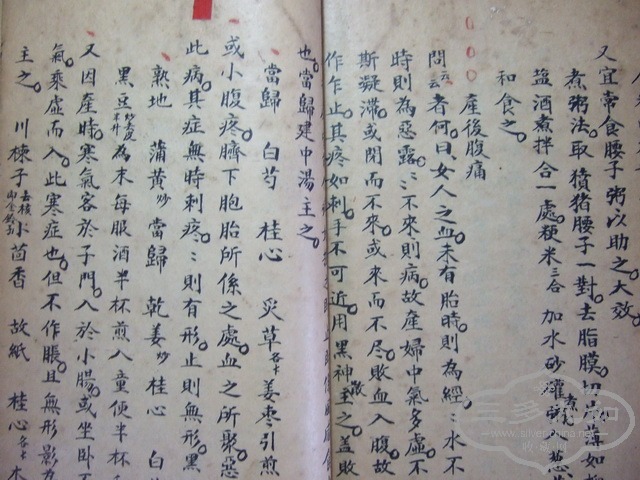 又宜常食腰子粥以助之大效
煮粥法。取獖猪腰子一對。去脂膜。切
盐酒煮拌合一處。粳米三合加水砂罐
和食之。
產後腹痛
問云者何。曰女人之血。未有胎時。則為經〻水不
時則為惡露〻不來則病。故產婦中氣多虛。不
斯凝滯。或閉而不來。或來而不尽。敗血入腹。故
作乍止。其疼如刺。手不可近。用黑神散主之。盖敗
也。當歸建中湯主之。
當歸 白芍 桂心 炙草各十姜枣引煎
或小腹疼。臍下胞胎所係之處。血之所聚。惡
此病。其症無時刺疼〻則有形。止則無形。黑
熟地 蒲黄炒 當歸 乾姜炒 桂心 白
黑豆 為末每服酒半杯煎入童便半杯
又因產時。寒氣客於子門。入於小腸。或坐卧
氣乘虛而入。此寒症也。但不作脹。且無形影
主之。 川楝子去核 小茴香 故紙 桂心各十木